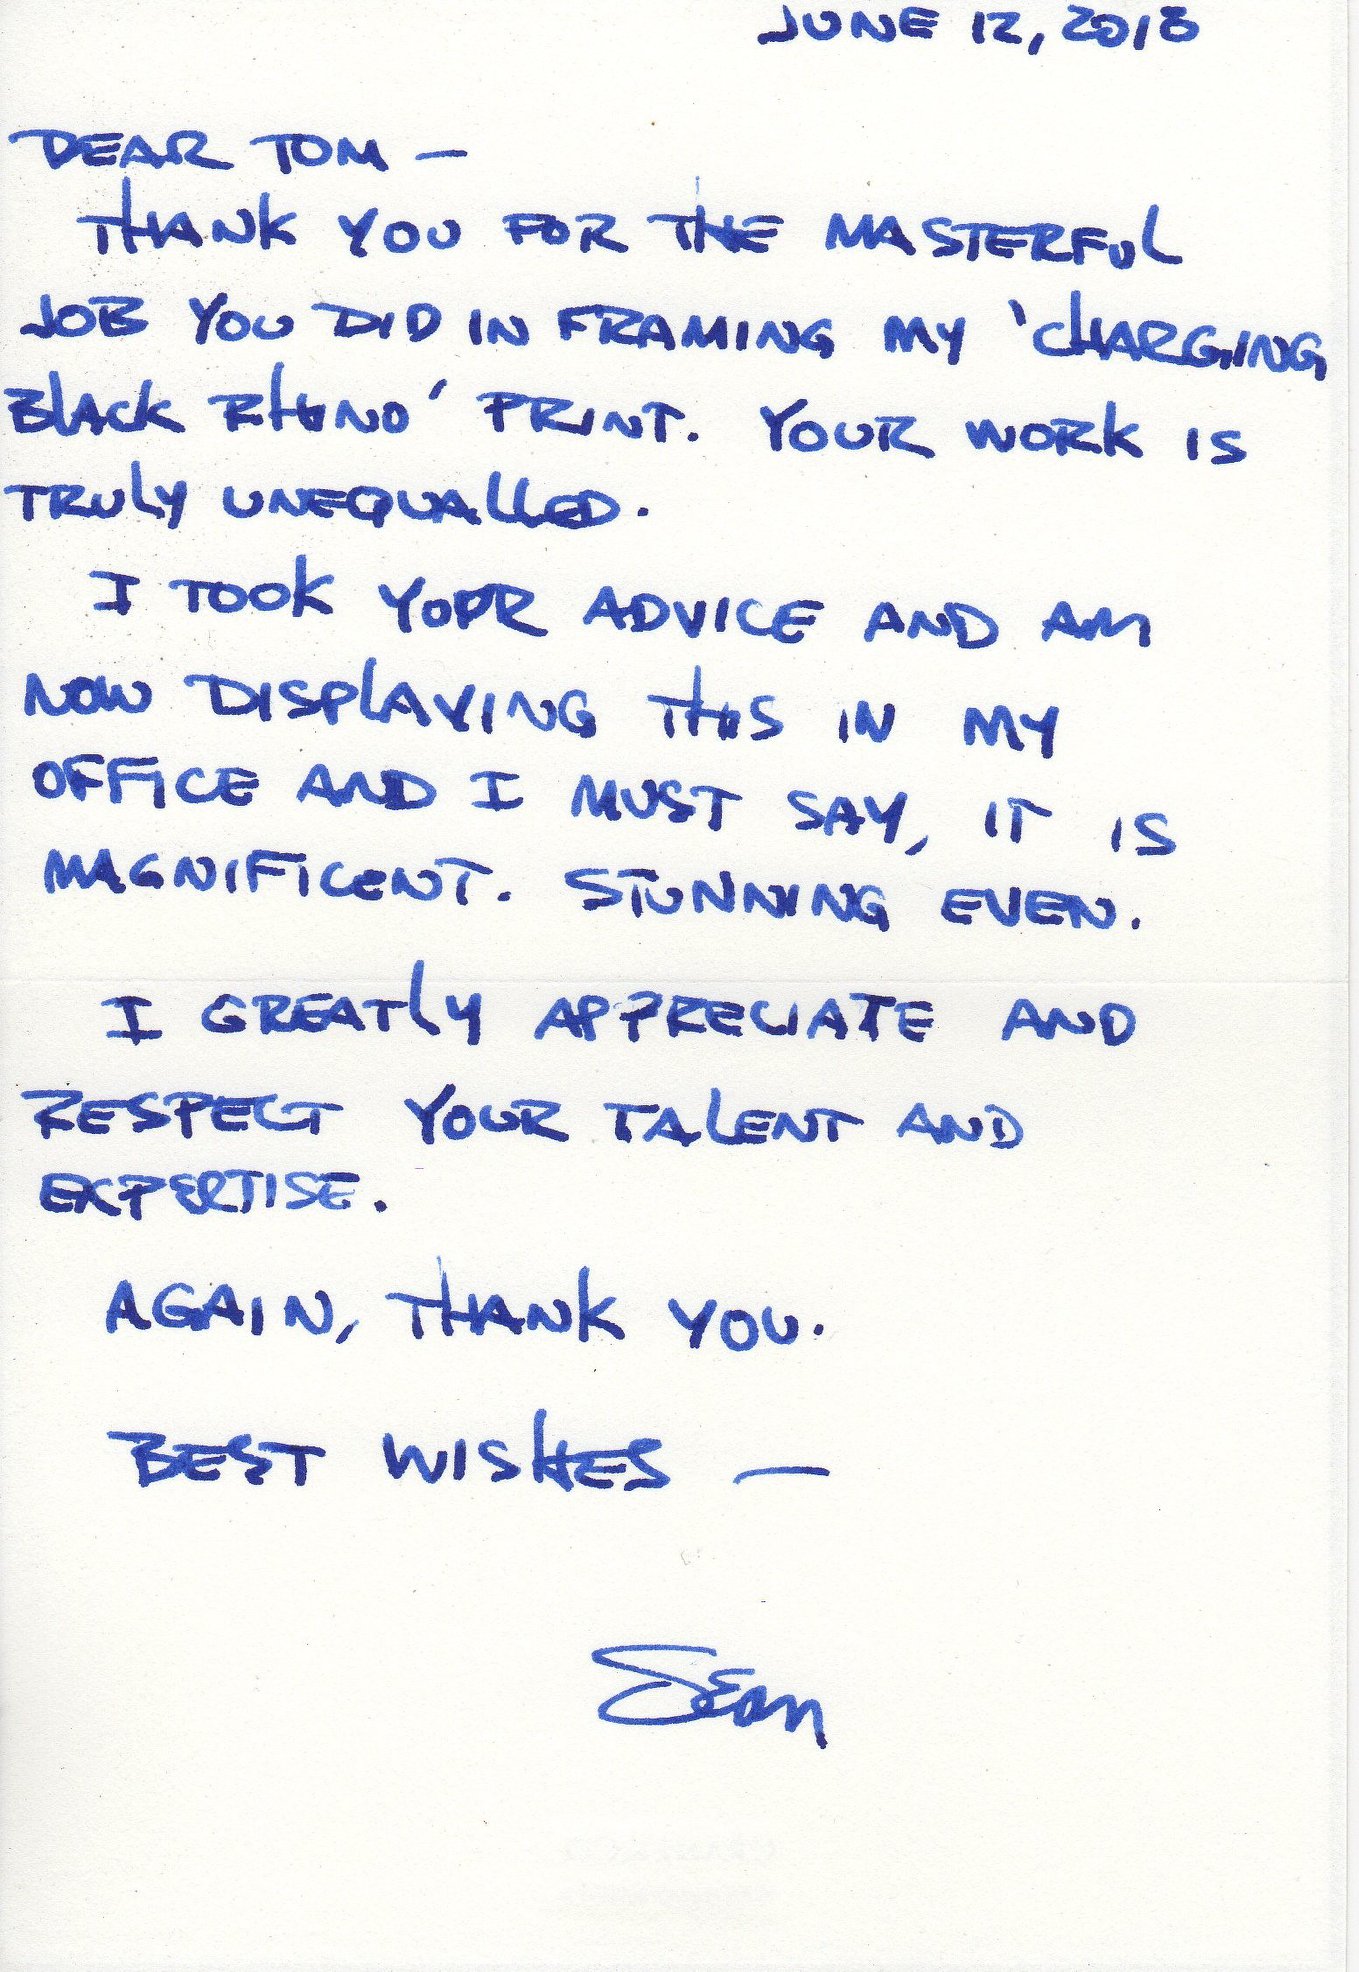 JUNE 12, 2018
DEAR TOM —
THANK YOU FOR THE MASTERFUL
JOB YOU DID IN FRAMING MY 'CHARGING
BLACK RHINO' PRINT. YOUR WORK IS
TRULY UNEQUALLED.
I TOOK YOUR ADVICE AND AM
NOW DISPLAYING THIS IN MY
OFFICE AND I MUST SAY, IT IS
MAGNIFICENT. STUNNING EVEN.
I GREATLY APPRECIATE AND
RESPECT YOUR TALENT AND
EXPERTISE.
AGAIN, THANK YOU.
BEST WISHES —
Sean